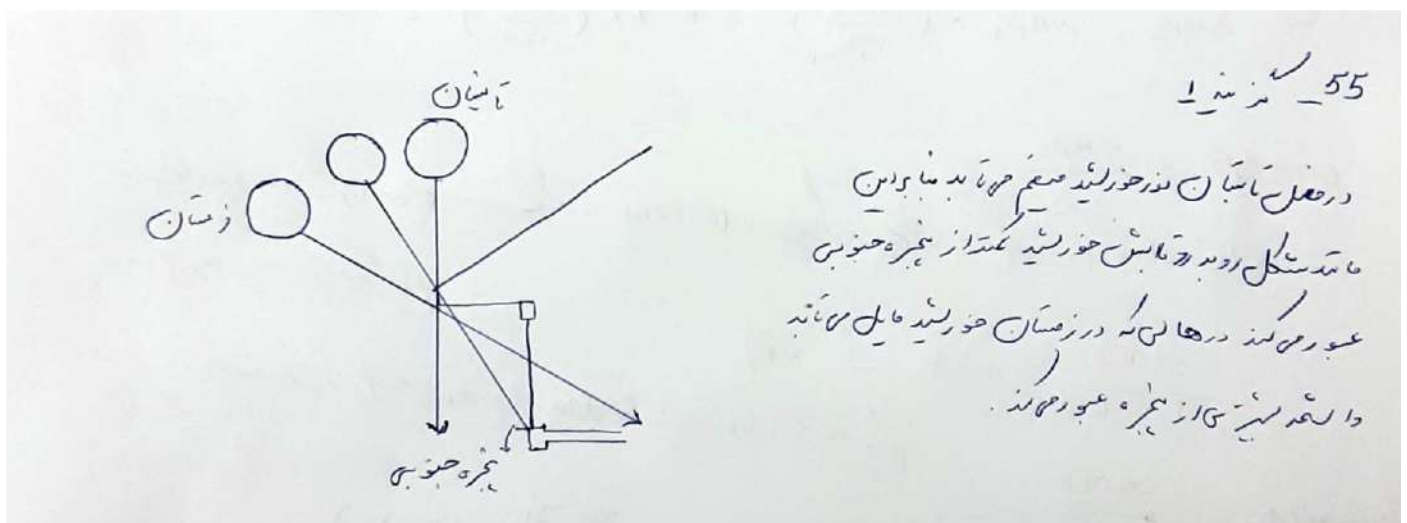 55_ گزینه 1
در فصل تابستان نور خورشید مستقیم می تابد بنابراین
مانند شکل روبه رو تابش خورشید کمتر از پنجره جنوبی
عبور می کند درحالی که در زمستان خورشید مایل می تابد
و اشعه بیشتری از پنجره عبور می کند.
تابستان
زمستان
پنجره جنوبی